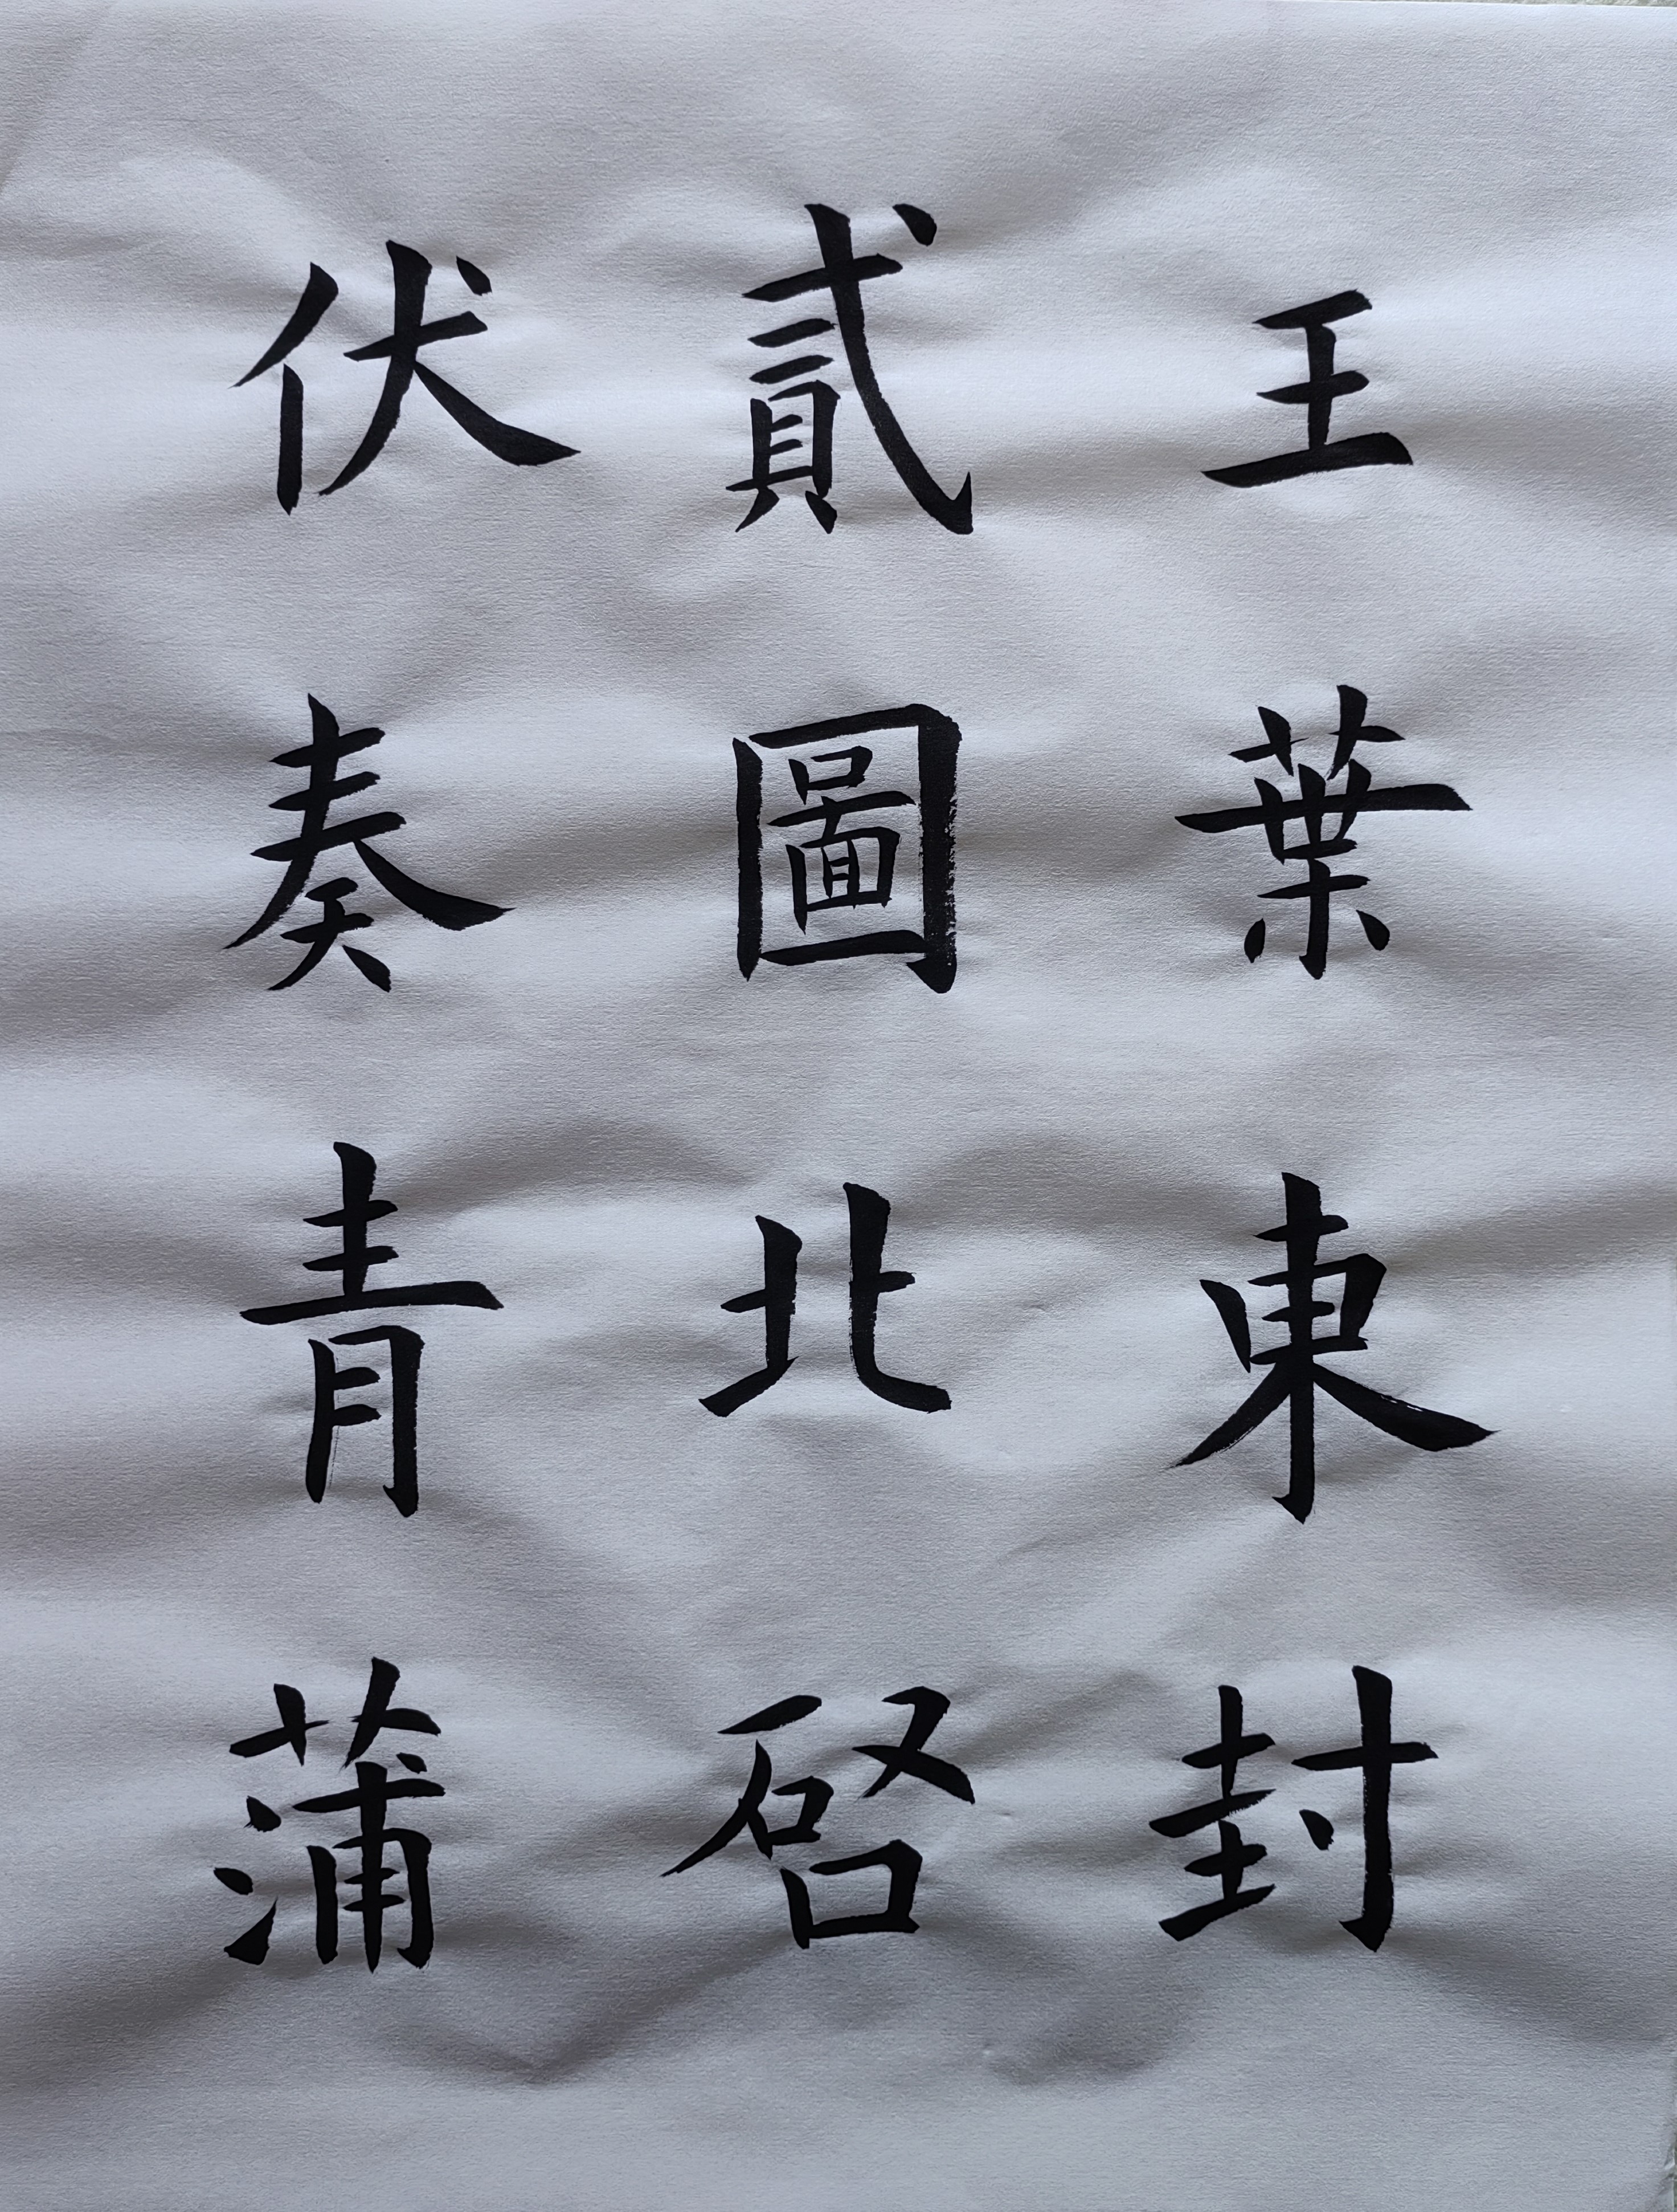 王葉東封
貳圖北啓
伏奏青蒲